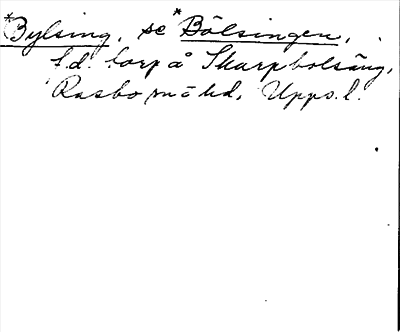 *Bylsing, se *Bölsingen,
f.d. torp å Skarpbolsäng,
Rasbo sn o hd, Upps. l.